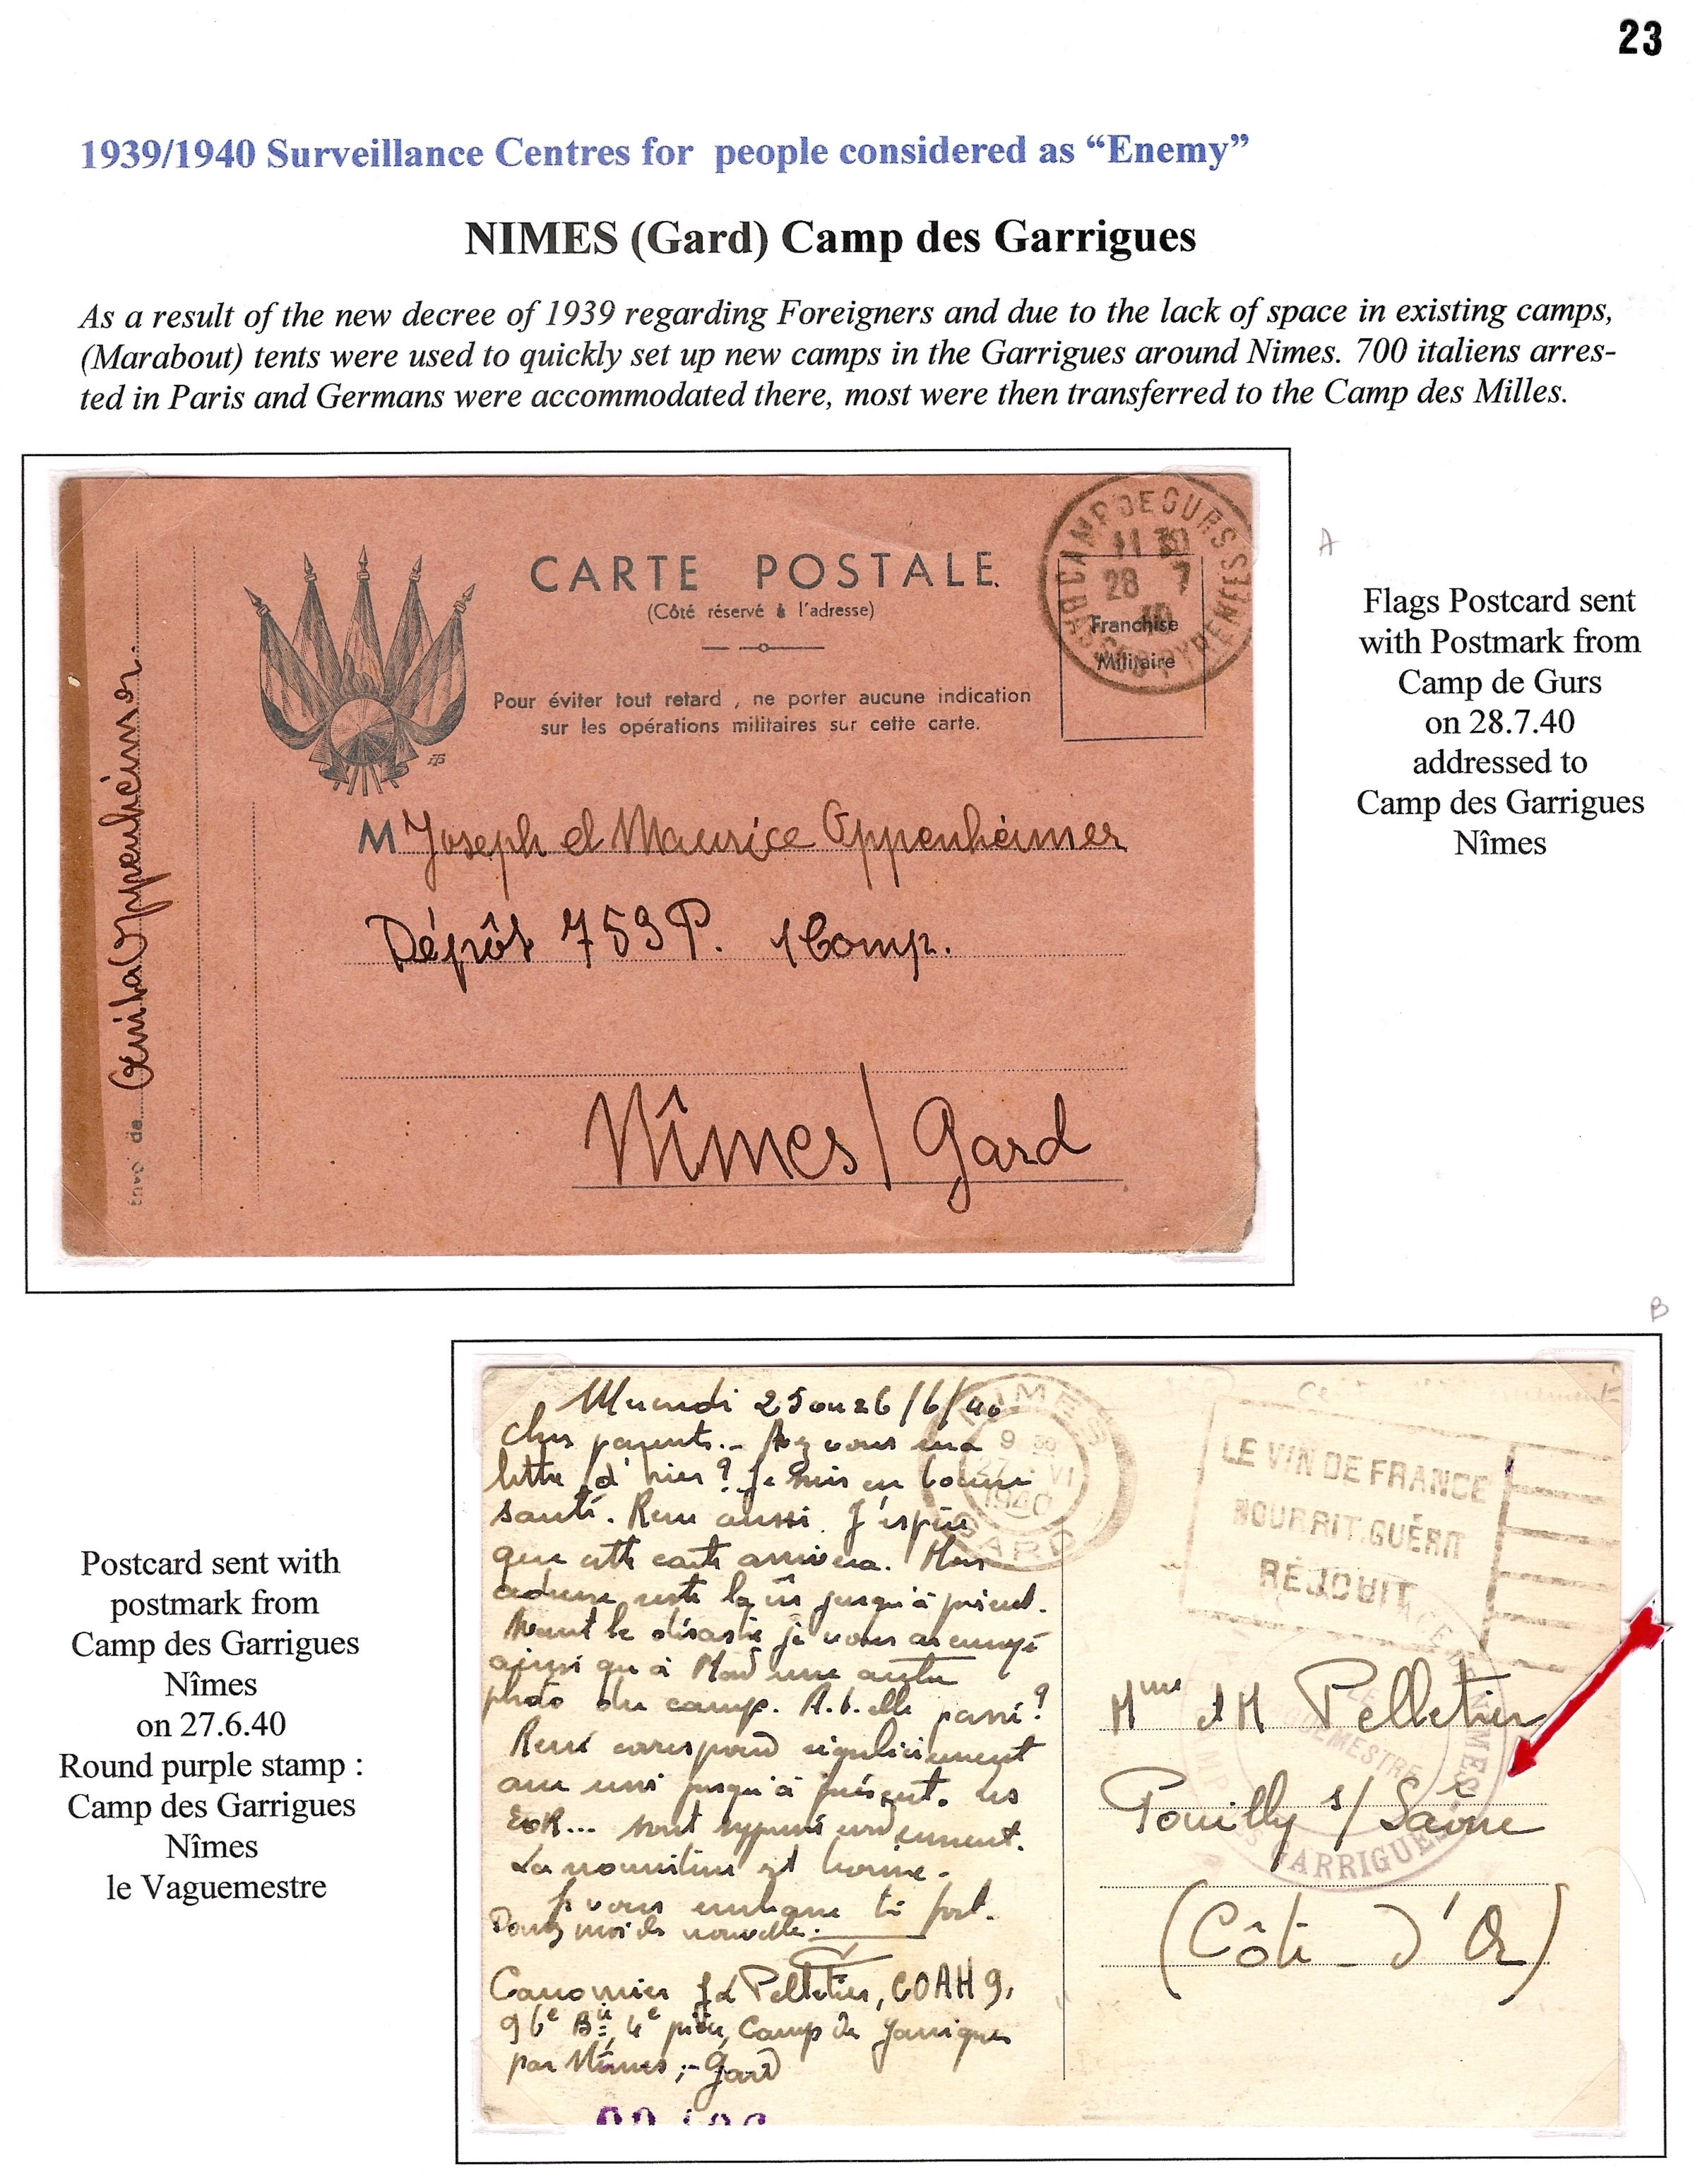 23
1939/1940 Surveillance Centres for people considered as “Enemy”
NIMES (Gard) Camp des Garrigues
As a result of the new decree of 1939 regarding Foreigners and due to the lack of space in existing camps,
(Marabout) tents were used to quickly set up new camps in the Garrigues around Nimes. 700 italiens arres-
ted in Paris and Germans were accommodated there, most were then transferred to the Camp des Milles.
A
CARTE POSTALE
(Côté réservé à l'adresse)
Pour éviter tout retard, ne porter aucune indication
sur les opérations militaires sur cette carte.
CAMP DE GURS
28 7
40
BASSES PYRENEES
Franchise
Militaire
Envoi de
Oppenheimer
M Joseph et Maurice Oppenheimer
Dépôt 753 P. 1 Comp.
Nîmes / Gard
Flags Postcard sent
with Postmark from
Camp de Gurs
on 28.7.40
addressed to
Camp des Garrigues
Nîmes
B
Postcard sent with
postmark from
Camp des Garrigues
Nîmes
on 27.6.40
Round purple stamp :
Camp des Garrigues
Nîmes
le Vaguemestre
25 ou 26/6/40
Chers parents.- Avez vous ma
lettre d'hier ? Je suis en bonne
santé. René aussi. J'espère
que cette carte arrivera. Mon
adresse reste la jusqu'à présent.
Avant le désastre je vous ai envoyé
ainsi qu'à une autre
photo du camp. A.t.elle passé ?
René correspond régulièrement
avec moi jusqu'à présent. Les
sont
La nourriture est bonne.
Je vous embrasse très fort.
Donnez moi des nouvelles.
Canonnier Pelletier, COAH 9,
96e Bie, 4e pièce, Camp des Garrigues
par Nîmes, - Gard
NIMES
9 30
27 VI
1940
GARD
LE VIN DE FRANCE
NOURRIT. GUÉRIT
RÉJOUIT
PLACE DE NIMES
LE
VAGUEMESTRE
CAMP DES GARRIGUES
Mme et M Pelletier
Pouilly s/ Saône
(Côte - d'Or)